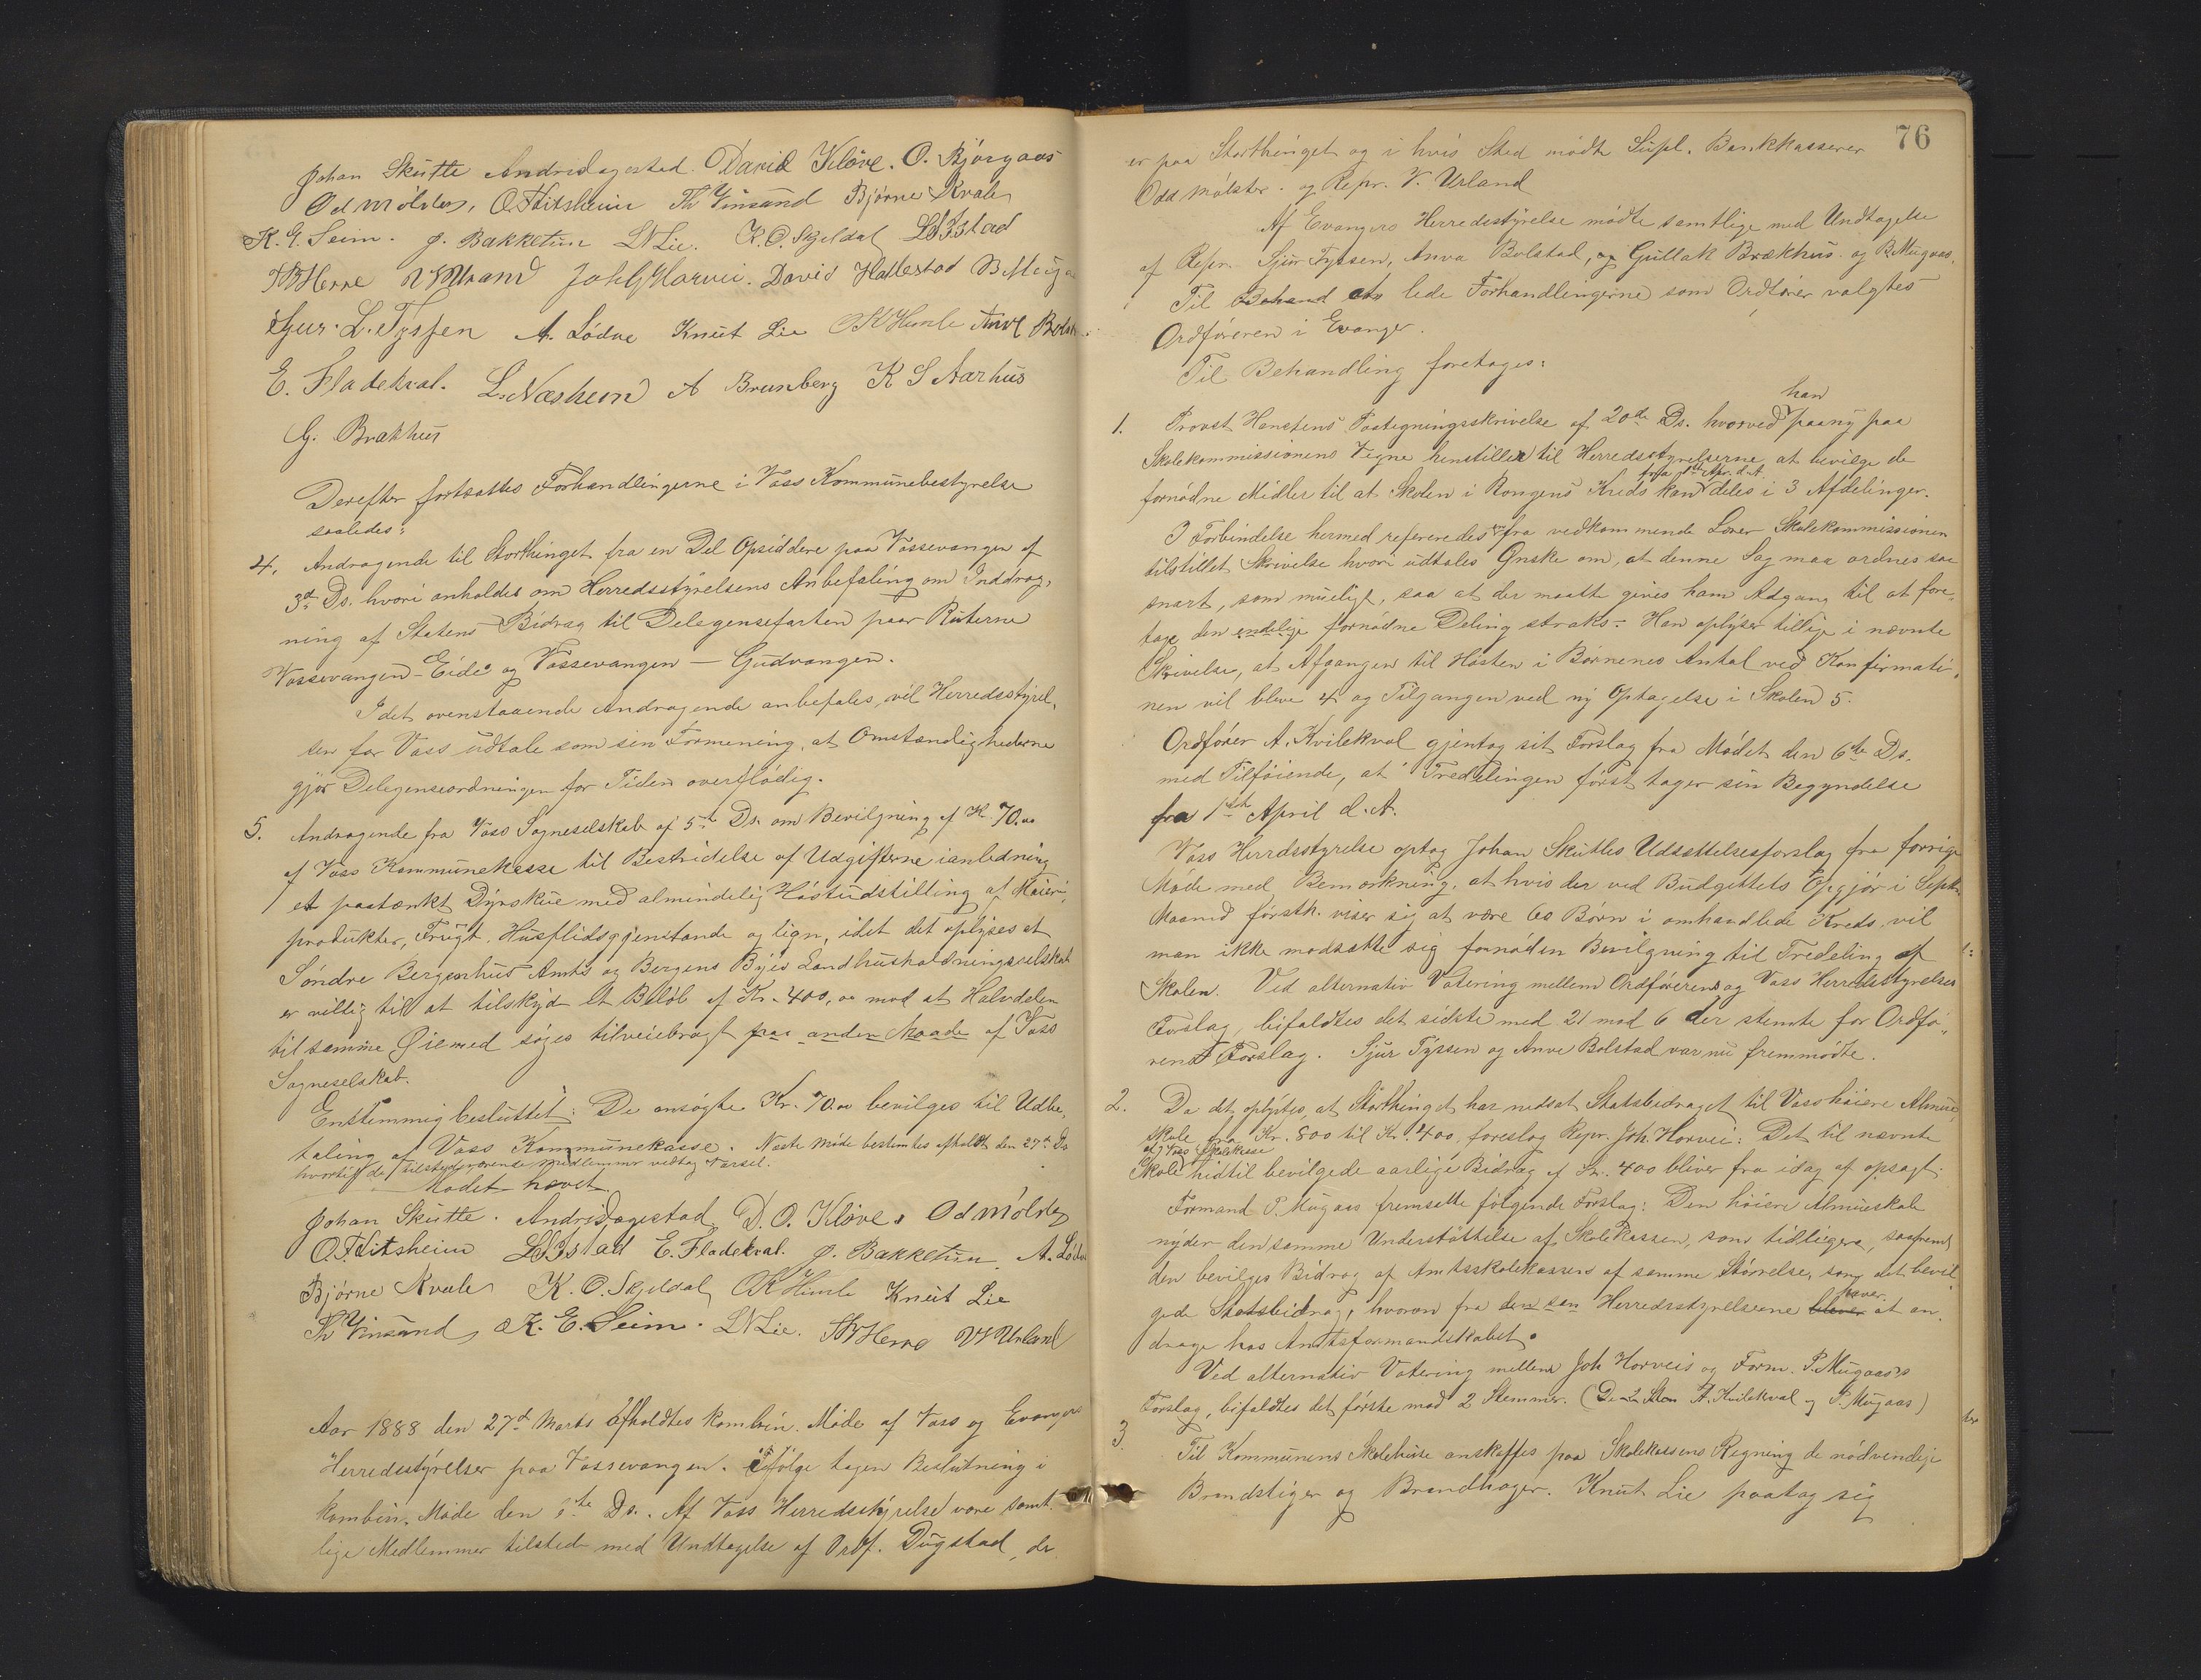 Johan Skutle Andrs Dagestad. David Kløve. O. Bjørgaas
Od Mølster, O. Fitsheim Th Vinsand Bjørne Kvale
K. E. Seim. J. Bakketun L N Lie. K. O. Skjeldal L Istad
T B Herre V S Urland Joh G Horvei. David Hallestad B Muga
Sjur. L. Tyssen A. Lødve Knut Lie O K Himle Anve Bolst
E. Fladekval. L. Næsheim A Brunberg K S Aarhus
G. Brækhus
Derefter fortsattes Forhandlingerne i Voss Kommunebestyrelse
saaledes:
4. Andragende til Storthinget fra en Del Opsiddere paa Vossevangen af
3d Ds. hvori anholdes om Herredsstyrelsens Anbefaling om Inddrag-
ning af Statens Bidrag til Delegensefarten paa Ruterne
Vossevangen - Eide og Vossevangen — Gudvangen.
Idet ovenstaaende Andragende anbefales, vil Herredsstyrel-
sen for Voss udtale som sin Formening, at Omstændighederne
gjør Delegenseordningen for Tiden overflødig.
5. Andragende fra Voss Sogneselskab af 5te Ds. om Bevilgning af Kr. 70.00
af Voss Kommunekasse til Bestridelse af Udgifterne ianledning
et paatænkt Dyrskue med almindelig Høstudstilling af Meieri-
produkter, Frugt, Husflidsgjenstande og lign, idet det oplyses at
Søndre Bergenhus Amts og Bergens Byes Landhusholdningsselskab
er villig til at tilskyde et Beløb af Kr. 400,00 mod at Halvdelen
til samme Øiemed søges tilveiebragt paa anden Maade af Voss
Sogneselskab.
Enstemmig besluttet: De ansøgte Kr. 70.00 bevilges til Udbe-
taling af Voss Kommunekasse. Næste Møde bestemtes afholdt den 27de Ds
hvortil de tilstedeværende Medlemmer vedtog Varsel.
Mødet hævet
Johan Skutle. Andrs Dagestad D. O. Kløve. Od Mølster
O. Fitsheim L Istad E. Fladekval. J. Bakketun. A. Lødve
Bjørne Kvale K. O. Skjeldal O K Himle Knut Lie
Th Vinsand, K. E. Seim. L N Lie. T B Herre V S Urland
Aar 1888 den 27de Marts afholdtes kombin. Møde af Voss og Evangers
Herredsstyrelser paa Vossevangen. Ifølge tagen Beslutning i
kombin. Møde den 6te Ds. Af Voss Herredsstyrelse vare samt-
lige Medlemmer tilstede med Undtagelse af Ordf. Dugstad, der
76
er paa Storthinget og i hvis Sted mødte Supl. Bankkasserer
Odd Mølster. og Repr. V. Urland
Af Evangers Herredsstyrelse mødte samtlige med Undtagelse
af Repr. Sjur Tyssen, Anve Bolstad, og Gullak Brækhus og B. Mugaas.
Til at lede Forhandlingerne som Ordfører valgtes
Ordføreren i Evanger.
Til Behandling foretages:
han
1. Provst Hanstens Paategningsskrivelse af 20de Ds. hvorved paany paa
Skolekommissionens Vegne henstiller til Herredsstyrelserne at bevilge de
fra 1ste Apr. d. A.
fornødne Midler til at Skolen i Bongens Kreds kan deles i 3 Afdelinger.
I Forbindelse hermed refereredes en fra vedkommende Lærer Skolekommissionen
tilstillet Skrivelse hvori udtales Ønske om, at denne Sag maa ordnes saa
snart, som mueligt, saa at der maatte gives ham Adgang til at fore-
tage den endelige fornødne Deling straks. Han oplyser tillige i nævnte
Skrivelse, at Afgangen til Høsten i Børnenes Antal ved Konfirmati-
nen vil blive 4 og Tilgangen ved ny Optagelse i Skolen 5.
Ordfører A. Kvilekval gjentog sit Forslag fra Mødet den 6te Ds.
med Tilføiende, at Tredelingen først tager sin Begyndelse
fra 1ste April d. A.
Voss Herrdsstyrelse optog Johan Skutles Udsættelsesforslag fra forrige
Møde med Bemærkning, at hvis der ved Budgettets Opgjør i Septr
Maaned førstk. viser sig at være 60 Børn i omhandlede Kreds, vil
man ikke modsætte sig fornøden Bevilgning til Tredeling af
Skolen. Ved alternativ Votering mellem Ordførerens og Voss Herredsstyrelses
Forslag, bifaldtes det sidste med 21 mod 6 der stemte for Ordfø-
rens Forslag. Sjur Tyssen og Anve Bolstad var nu fremmødte.
2. Da det oplystes, at Storthinget har nedsat Statsbidraget til Voss høiere Almue-
skole fra Kr. 800 til Kr. 400, foreslog Repr. Joh. Horvei: Det til nævnte
af Voss Skolekasse
Skole hidtil bevilgede aarlige Bidrag af Kr. 400 bliver fra idag af opsagt.
Formand P. Mugaas fremsatte følgende Forslag: Den høiere Almueskole
nyder den samme Understøttelse af Skolekassen, som tidligere, saafremt
den bevilges Bidrag af Amtsskolekassen af samme Størrelse, som det bevil-
haver
gede Statsbidrag, hvorom fra den sen Herredsstyrelserne bliver at an-
drage hos Amtsformandskabet.
Ved alternativ Votering mellem Joh Horveis og Form. P. Mugaas's
Forslag, bifaldtes det første mod 2 Stemmer. (De 2 Stem A. Kvilekval og P. Mugaas)
3. Til Kommunens Skolehuse anskaffes paa Skolekassens Regning de nødvendige
Brandstiger og Brandhager. Knut Lie paatog sig